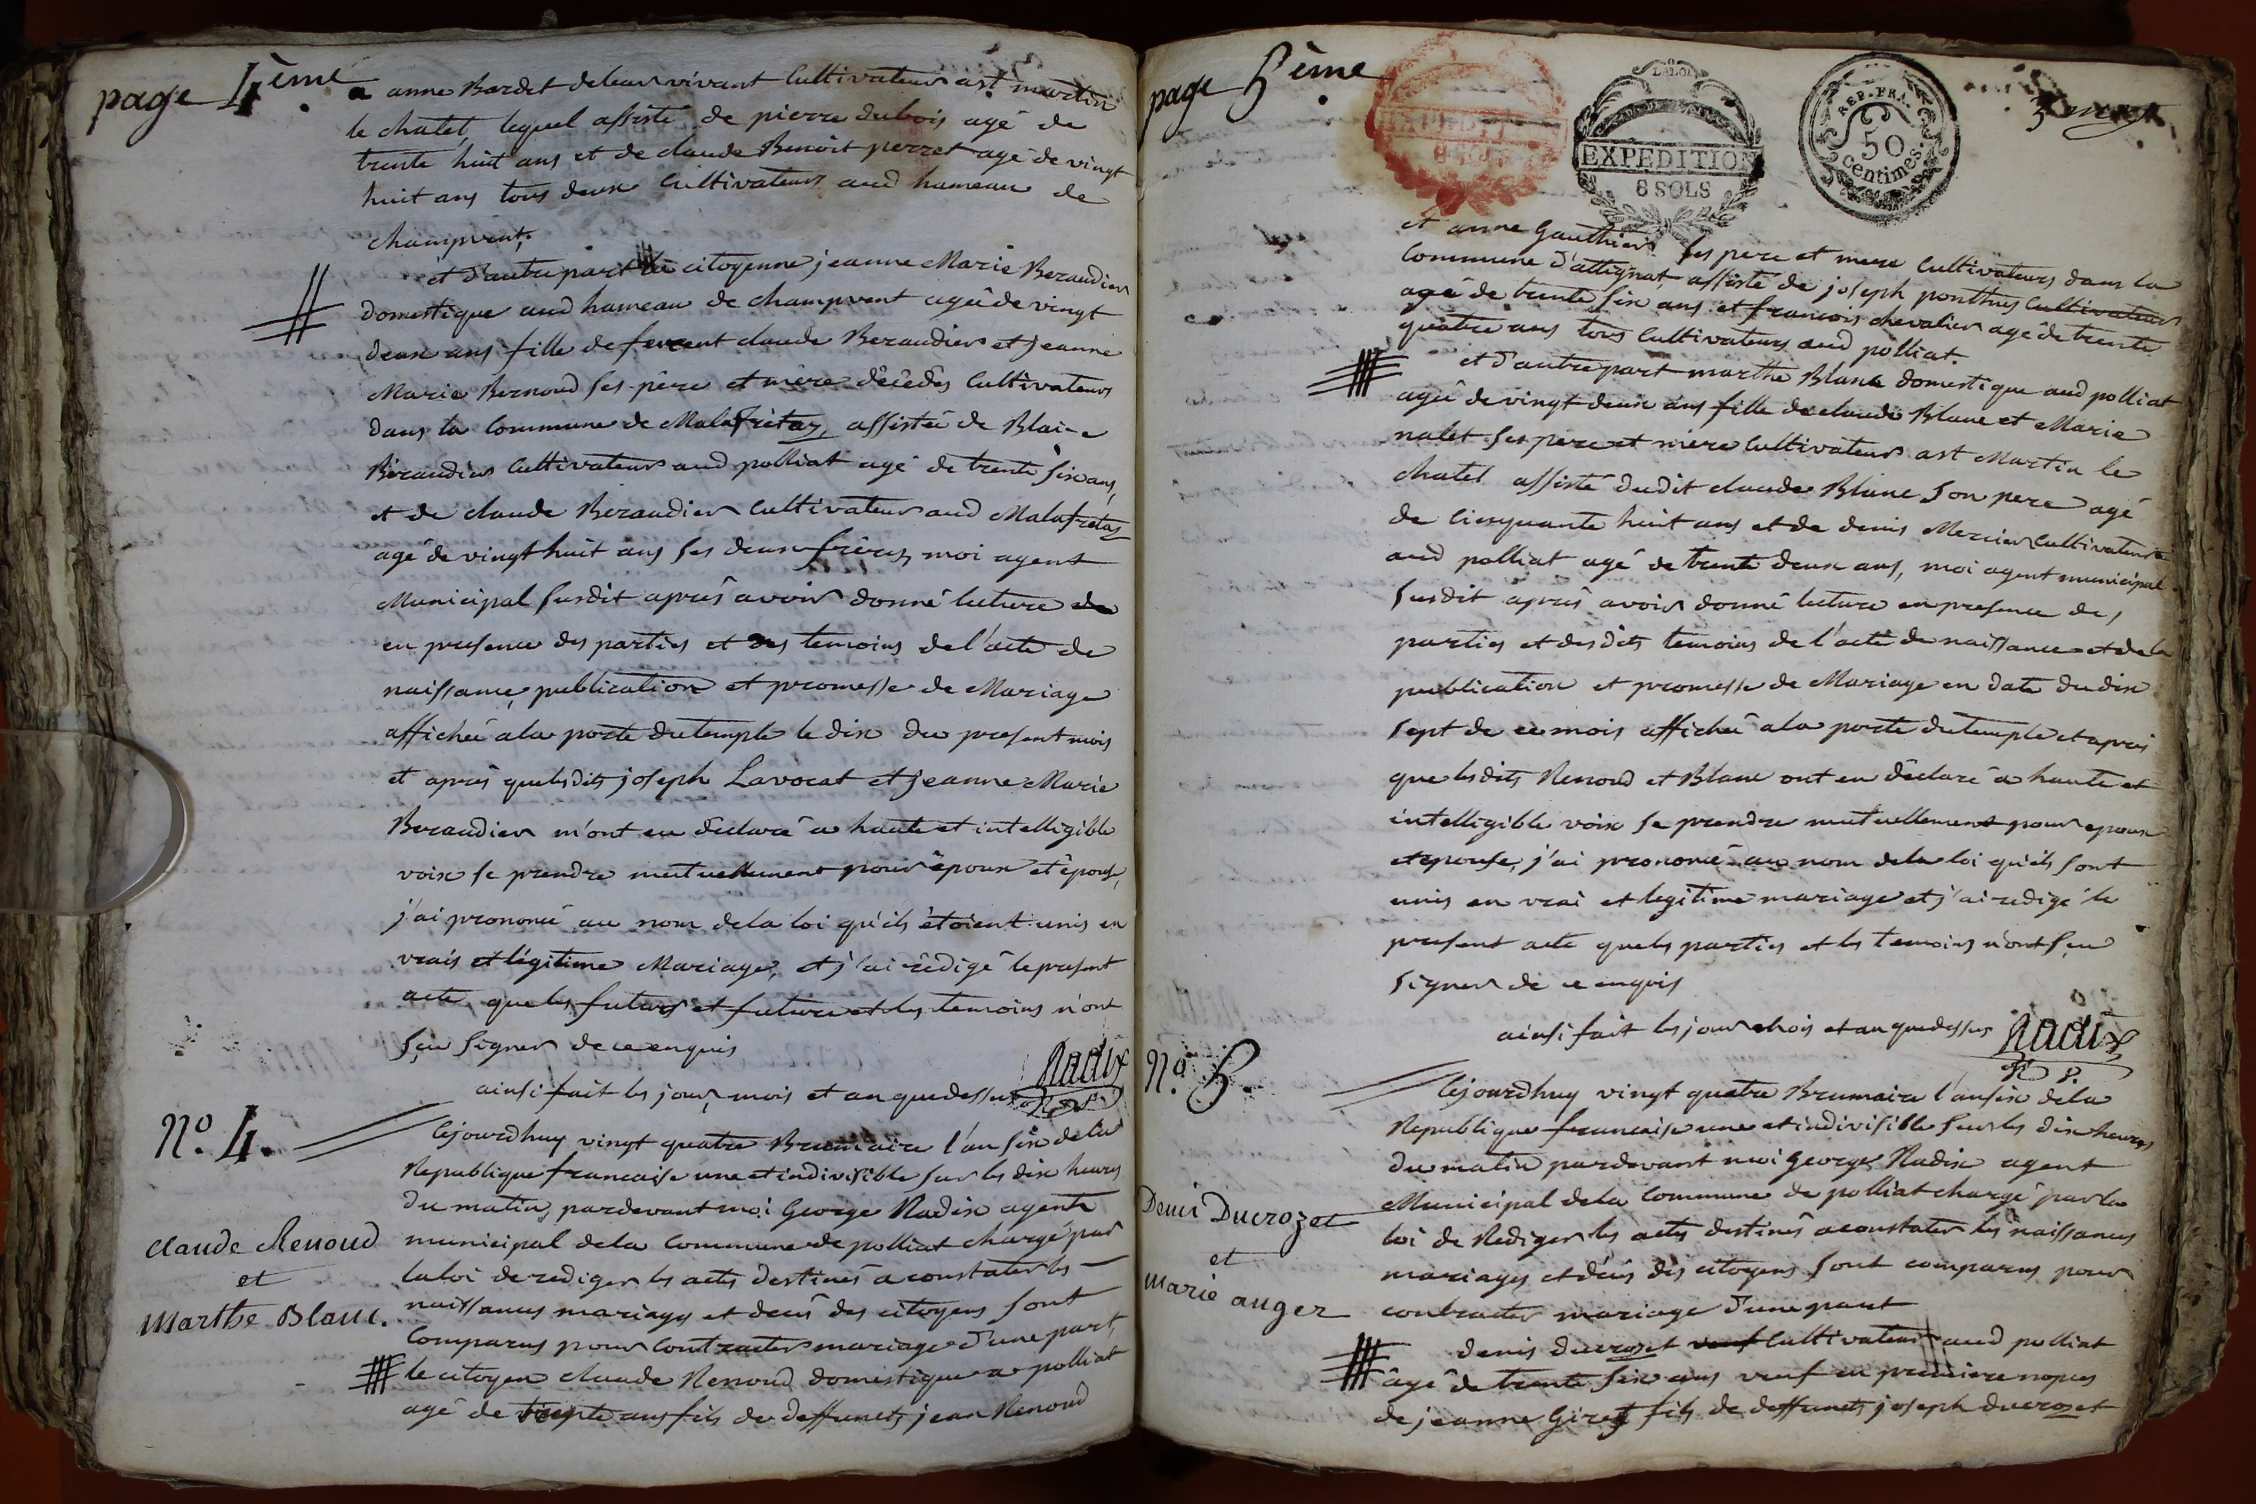 page 4ème
a anne Bardet deleur vivant Cultivateurs a st martin
le chatel, lequel assisté de pierre dubois agé de
trente huit ans et de claude Benoit perret agé de vingt
huit ans tous deux Cultivateurs aud hameau de
champvent,
et d'autre part la citoyenne jeanne Marie Beraudier
domestique aud hameau de champvent agée de vingt
deux ans fille de claude Beraudier et jeanne
Marie Bernoud ses père et mère décédés Cultivateurs
dans la Commune de Malafretaz, assistée de Blaise
Beraudier Cultivateur aud polliat agé de trente six ans,
et de claude Beraudier Cultivateur aud Malafretaz
agé de vingt huit ans ses deux frères, moi agent
Municipal susdit après avoir donné lecture
en presence des parties et des temoins de l'acte de
naissance, publication et promesse de Mariage
affichée a la porte du temple le dix du present mois
et après quelesdits joseph Lavocat et jeanne Marie
Beraudier m'ont eu déclaré a haute et intelligible
voix se prendre mutuellement pour époux et épouse,
j'ai prononcé au nom dela loi qu'ils étoient unis en
vrais et légitime Mariage, et j'ai rédigé le present
acte que les futurs et future et les temoins n'ont
sçu signer de ce enquis
ainsi fait les jour, mois et an que dessus Nadix
N.º 4.
Cejourdhuy vingt quatre Brumaire l'an six de la
Republique francaise une et indivisible sur les dix heures
du matin, pardevant moi George Nadix agent
municipal dela Commune de polliat chargé par
la loi de rediger les actes destinés a constater les
naissances mariages et decès des citoyens sont
Comparus pour Contracter mariage d'une part,
claude Renoud
et
Marthe Blanc.
le citoyen claude Renoud domestique a polliat
agé de trente ans fils de deffunets jean Renoud
page 5ème
DALOI
EXPEDITION
6 SOLS
REP. FRA.
50
Centimes.
et anne Gauthier ses pere et mere Cultivateurs dans la
Commune d'attignat, assisté de joseph ponthus Cultivateur
agé de trente six ans et francois chevalier agé de trente
quatre ans tous Cultivateurs aud polliat.
et d'autre part marthe Blanc domestique aud polliat
agée de vingt deux ans fille de claude Blanc et Marie
nalet ses père et mère Cultivateurs a st Martin le
chatel assisté dudit claude Blanc son pere agé
de Cinquante huit ans et de denis Mercier Cultivateur
aud polliat agé de trente deux ans, moi agent municipal
susdit après avoir donné lecture en presence des
parties et desdits temoins de l'acte de naissance et de la
publication et promesse de Mariage en date du dix
sept de ce mois affichée a la porte du temple et après
que lesdits Renoud et Blanc ont eu déclaré a haute et
intelligible voix se prendre mutuellement pour epoux
et epouse, j'ai prononcé au nom dela loi qu'ils sont
unis en vrai et legitime mariage et j'ai redigé le
present acte queles parties et les temoins n'ont sçu
signer de ce enquis
ainsi fait les jour mois et an que dessus Nadix
N.º 5.
Cejourdhuy vingt quatre Brumaire l'an six dela
Republique francaise une et indivisible sur les dix heures
du matin pardevant moi George Nadix agent
Municipal dela Commune de polliat chargé par la
loi de Rediger les actes destinés a constater les naissances
mariages et décès des citoyens sont comparus pour
contracter mariage d'une part
Denis Ducrozet
et
Marie auger
denis ducrozet veuf Cultivateur aud polliat
âgé de trente six ans veuf en premiere nopces
de jeanne Girez fils de deffunets joseph ducrozet